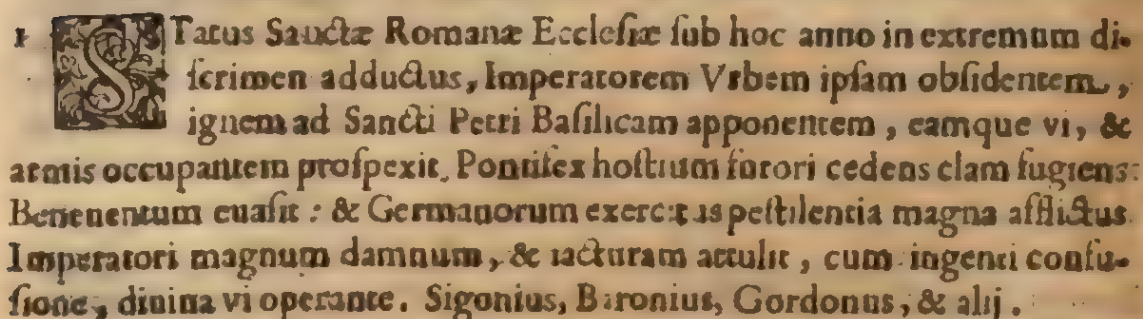 1 STatus Sanctæ Romanæ Ecclesiæ sub hoc anno in extremum di-
scrimen adductus, Imperatorem Vrbem ipsam obsidentem,
ignem ad Sancti Petri Basilicam apponentem, eamque vi, &
armis occupantem prospexit. Pontifex hostium furori cedens clam fugiens
Beneuentum euasit: & Germanorum exercitus pestilentia magna afflictus
Imperatori magnum damnum, & iacturam attulit, cum ingenti confu-
sione, diuina vi operante. Sigonius, Baronius, Gordonus, & alij.